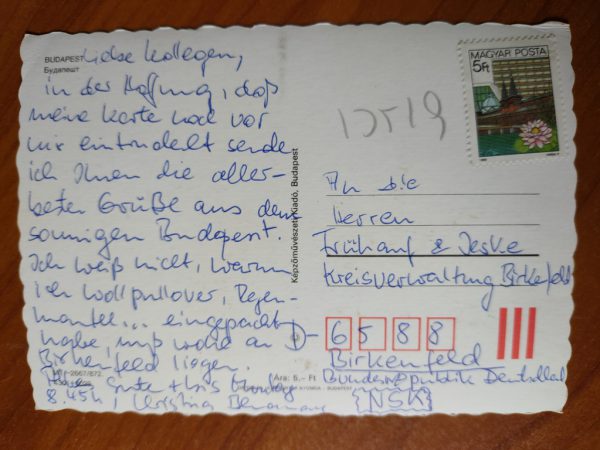 BUDAPEST
Будапешт
Liebe Kollegen,
in der Hoffnung, daß
meine Karte noch vor
mir eintrudelt sende
ich Ihnen die aller-
besten Grüße aus dem
sonnigen Budapest.
Ich weiß nicht, warum
ich Wollpullover, Regen-
mantel... eingepackt
habe, muß wohl an
Birkenfeld liegen.
Alles Gute + bis
8.45h, Christina
Képzőművészeti Kiadó, Budapest
Ára: 5,- Ft
MAGYAR POSTA
5Ft
An die
Herren
Frühauf & Jeske
Kreisverwaltung Birkenfeld
D- 6588
Birkenfeld
Bundesrepublik Deutschland
NSK